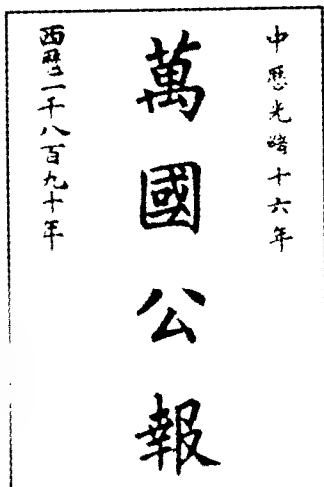 中歷光緒十六年
萬國公報
西曆一千八百九十年